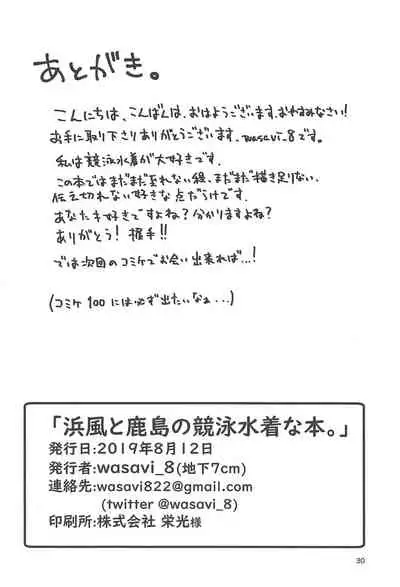 あとがき。
こんにちは、こんばんは、おはようございます、おやすみなさい!
お手に取り下さりありがとうございます、wasavi_8です。
私は競泳水着が大好きです。
この本ではまだまだ至れない程、まだまだ描き足りない、
伝え切れない好きな点だらけです。
あなたも好きですよね?分かりますよね?
ありがとう!握手!!
では次回のコミケでお会い出来れば...!
(コミケ100には必ず出たいなぁ...)
「浜風と鹿島の競泳水着な本。」
発行日:2019年8月12日
発行者:wasavi_8(地下7cm)
連絡先:wasavi822@gmail.com
(twitter @wasavi_8)
印刷所:株式会社 栄光様
30